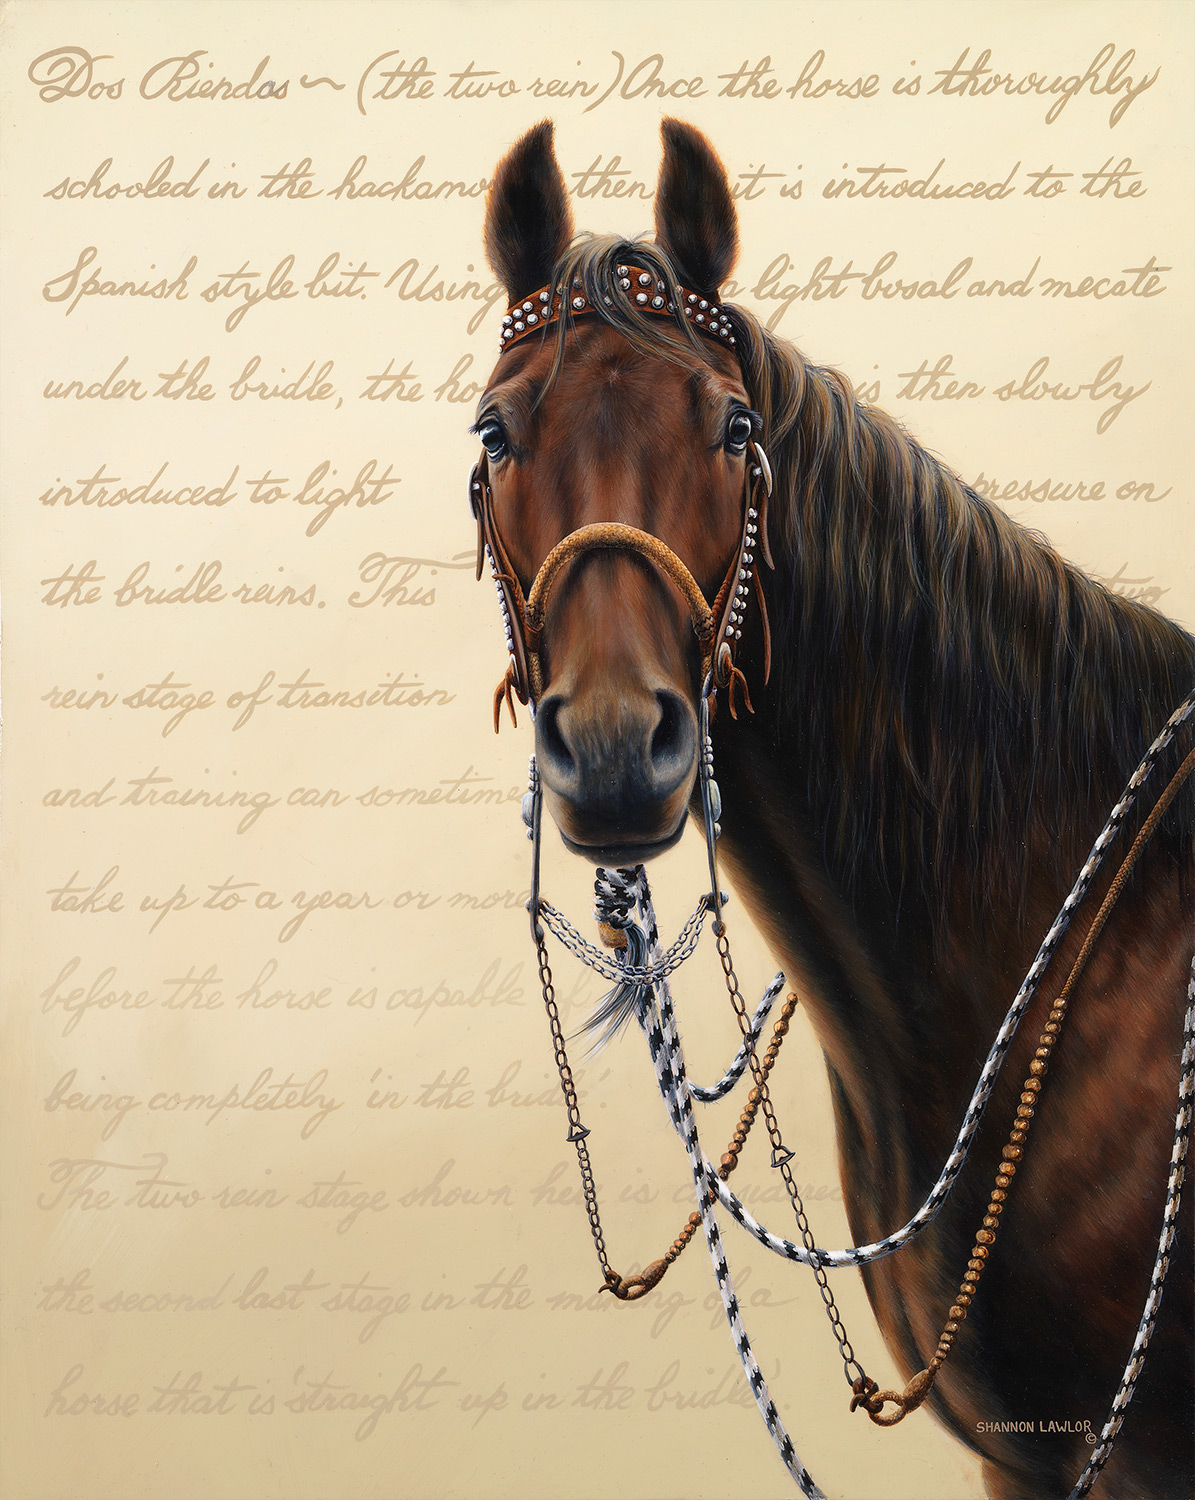 Dos Riendas ~ (the two rein) Once the horse is thoroughly
schooled in the hackamo then it is introduced to the
Spanish style bit. Using a light bosal and mecate
under the bridle, the ho is then slowly
introduced to light pressure on
the bridle reins. This two
rein stage of transition
and training can sometime
take up to a year or more
before the horse is capable of
being completely 'in the bridle'.
The two rein stage shown here is considered
the second last stage in the making of a
horse that is 'straight up in the bridle'.
SHANNON LAWLOR
©